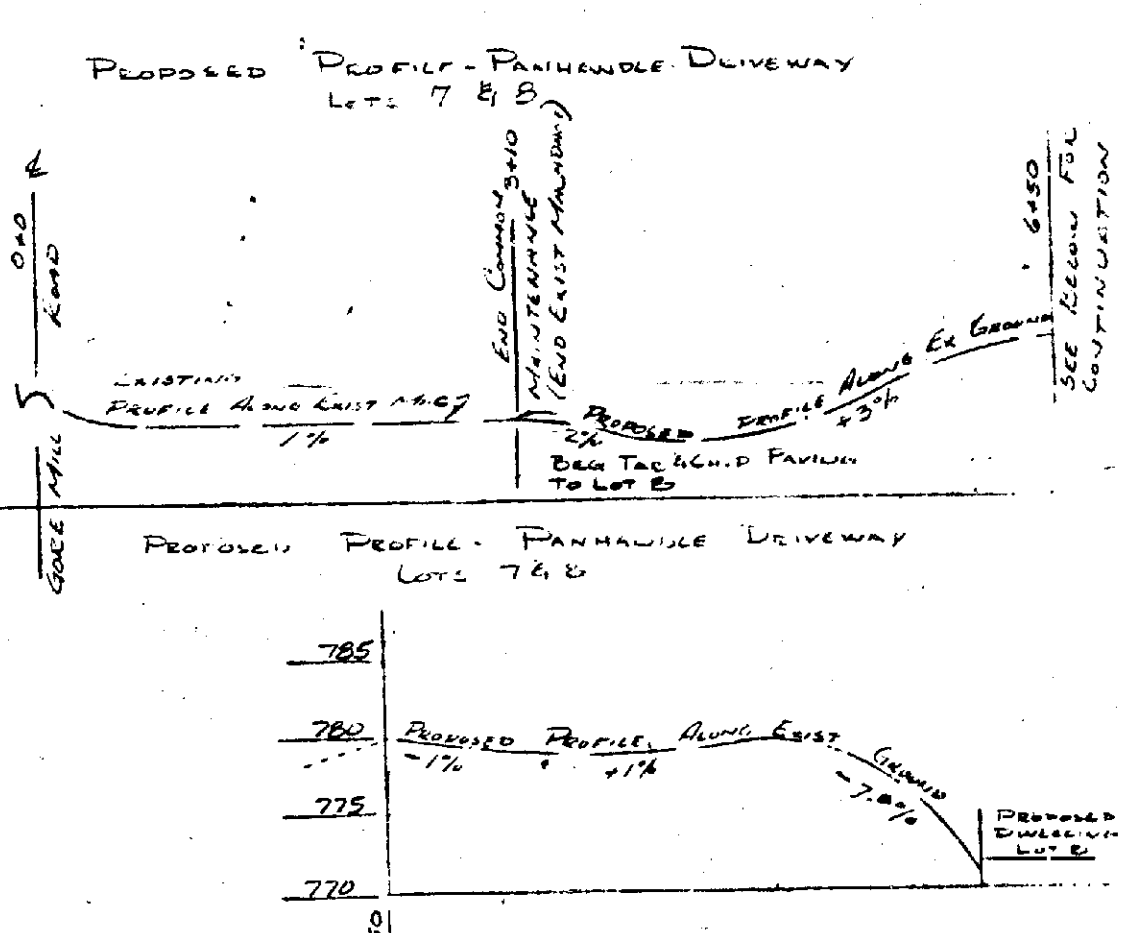 PROPOSED PROFILE - PANHANDLE DRIVEWAY
LOTS 7 & 8
℄
0+0
GORE MILL ROAD
END COMMON 3+10
MAINTENANCE
(END EXIST MACADAM)
6+50
SEE BELOW FOR
CONTINUATION
EXISTING
PROFILE ALONG EXIST
1%
-2%
PROPOSED PROFILE ALONG EX GROUND
+3%
BEG TAR & CHIP PAVING
TO LOT 8
PROPOSED PROFILE - PANHANDLE DRIVEWAY
LOTS 7 & 8
785
780
775
770
PROPOSED PROFILE ALONG EXIST GROUND
-1%
+1%
PROPOSED
DWELLING
LOT 8
50